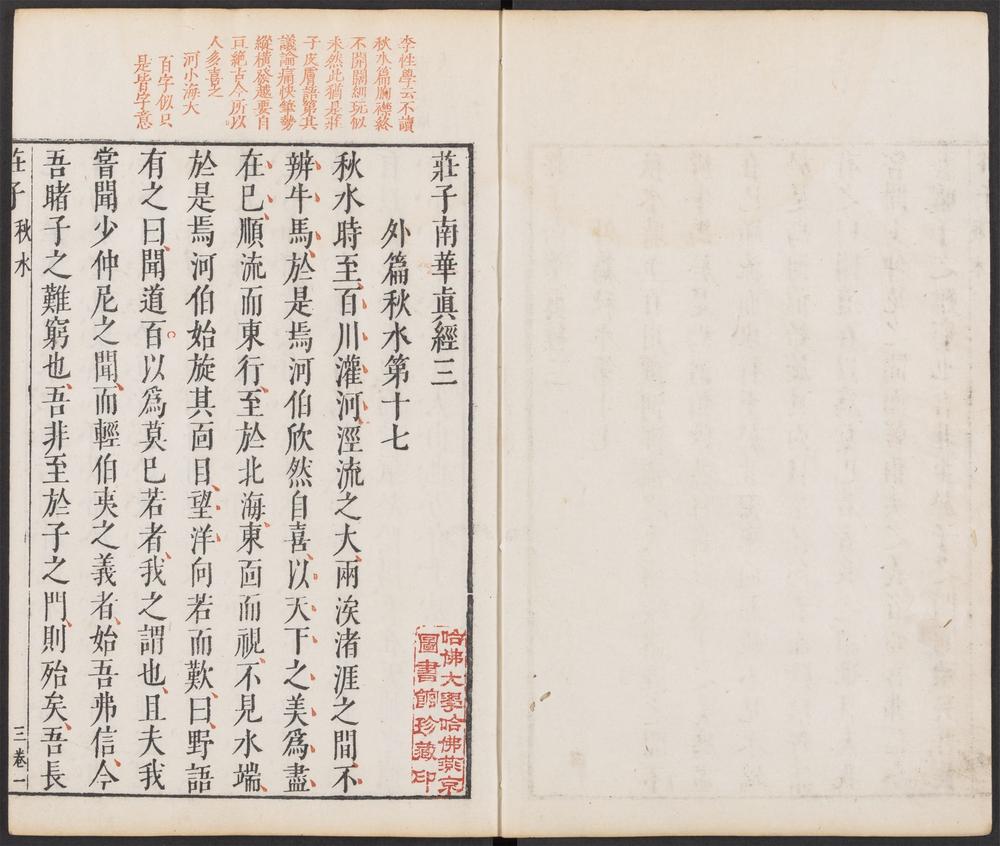 李性學云不讀
秋水篇胸襟終
不開闊細玩似
未然此猶是莊
子皮膚語第其
議論痛快筆勢
縱橫發越要自
亘絶古今所以
人多喜之
河小海大
百字似只
是皆字意
莊子南華眞經三
外篇秋水第十七
秋水時至百川灌河涇流之大兩涘渚涯之間不
辨牛馬於是焉河伯欣然自喜以天下之美爲盡
在己順流而東行至於北海東面而視不見水端
於是焉河伯始旋其面目望洋向若而歎曰野語
有之曰聞道百以爲莫己若者我之謂也且夫我
嘗聞少仲尼之聞而輕伯夷之義者始吾弗信今
吾睹子之難窮也吾非至於子之門則殆矣吾長
莊子 秋水
三卷 一
哈佛大學哈佛燕京
圖書館珍藏印